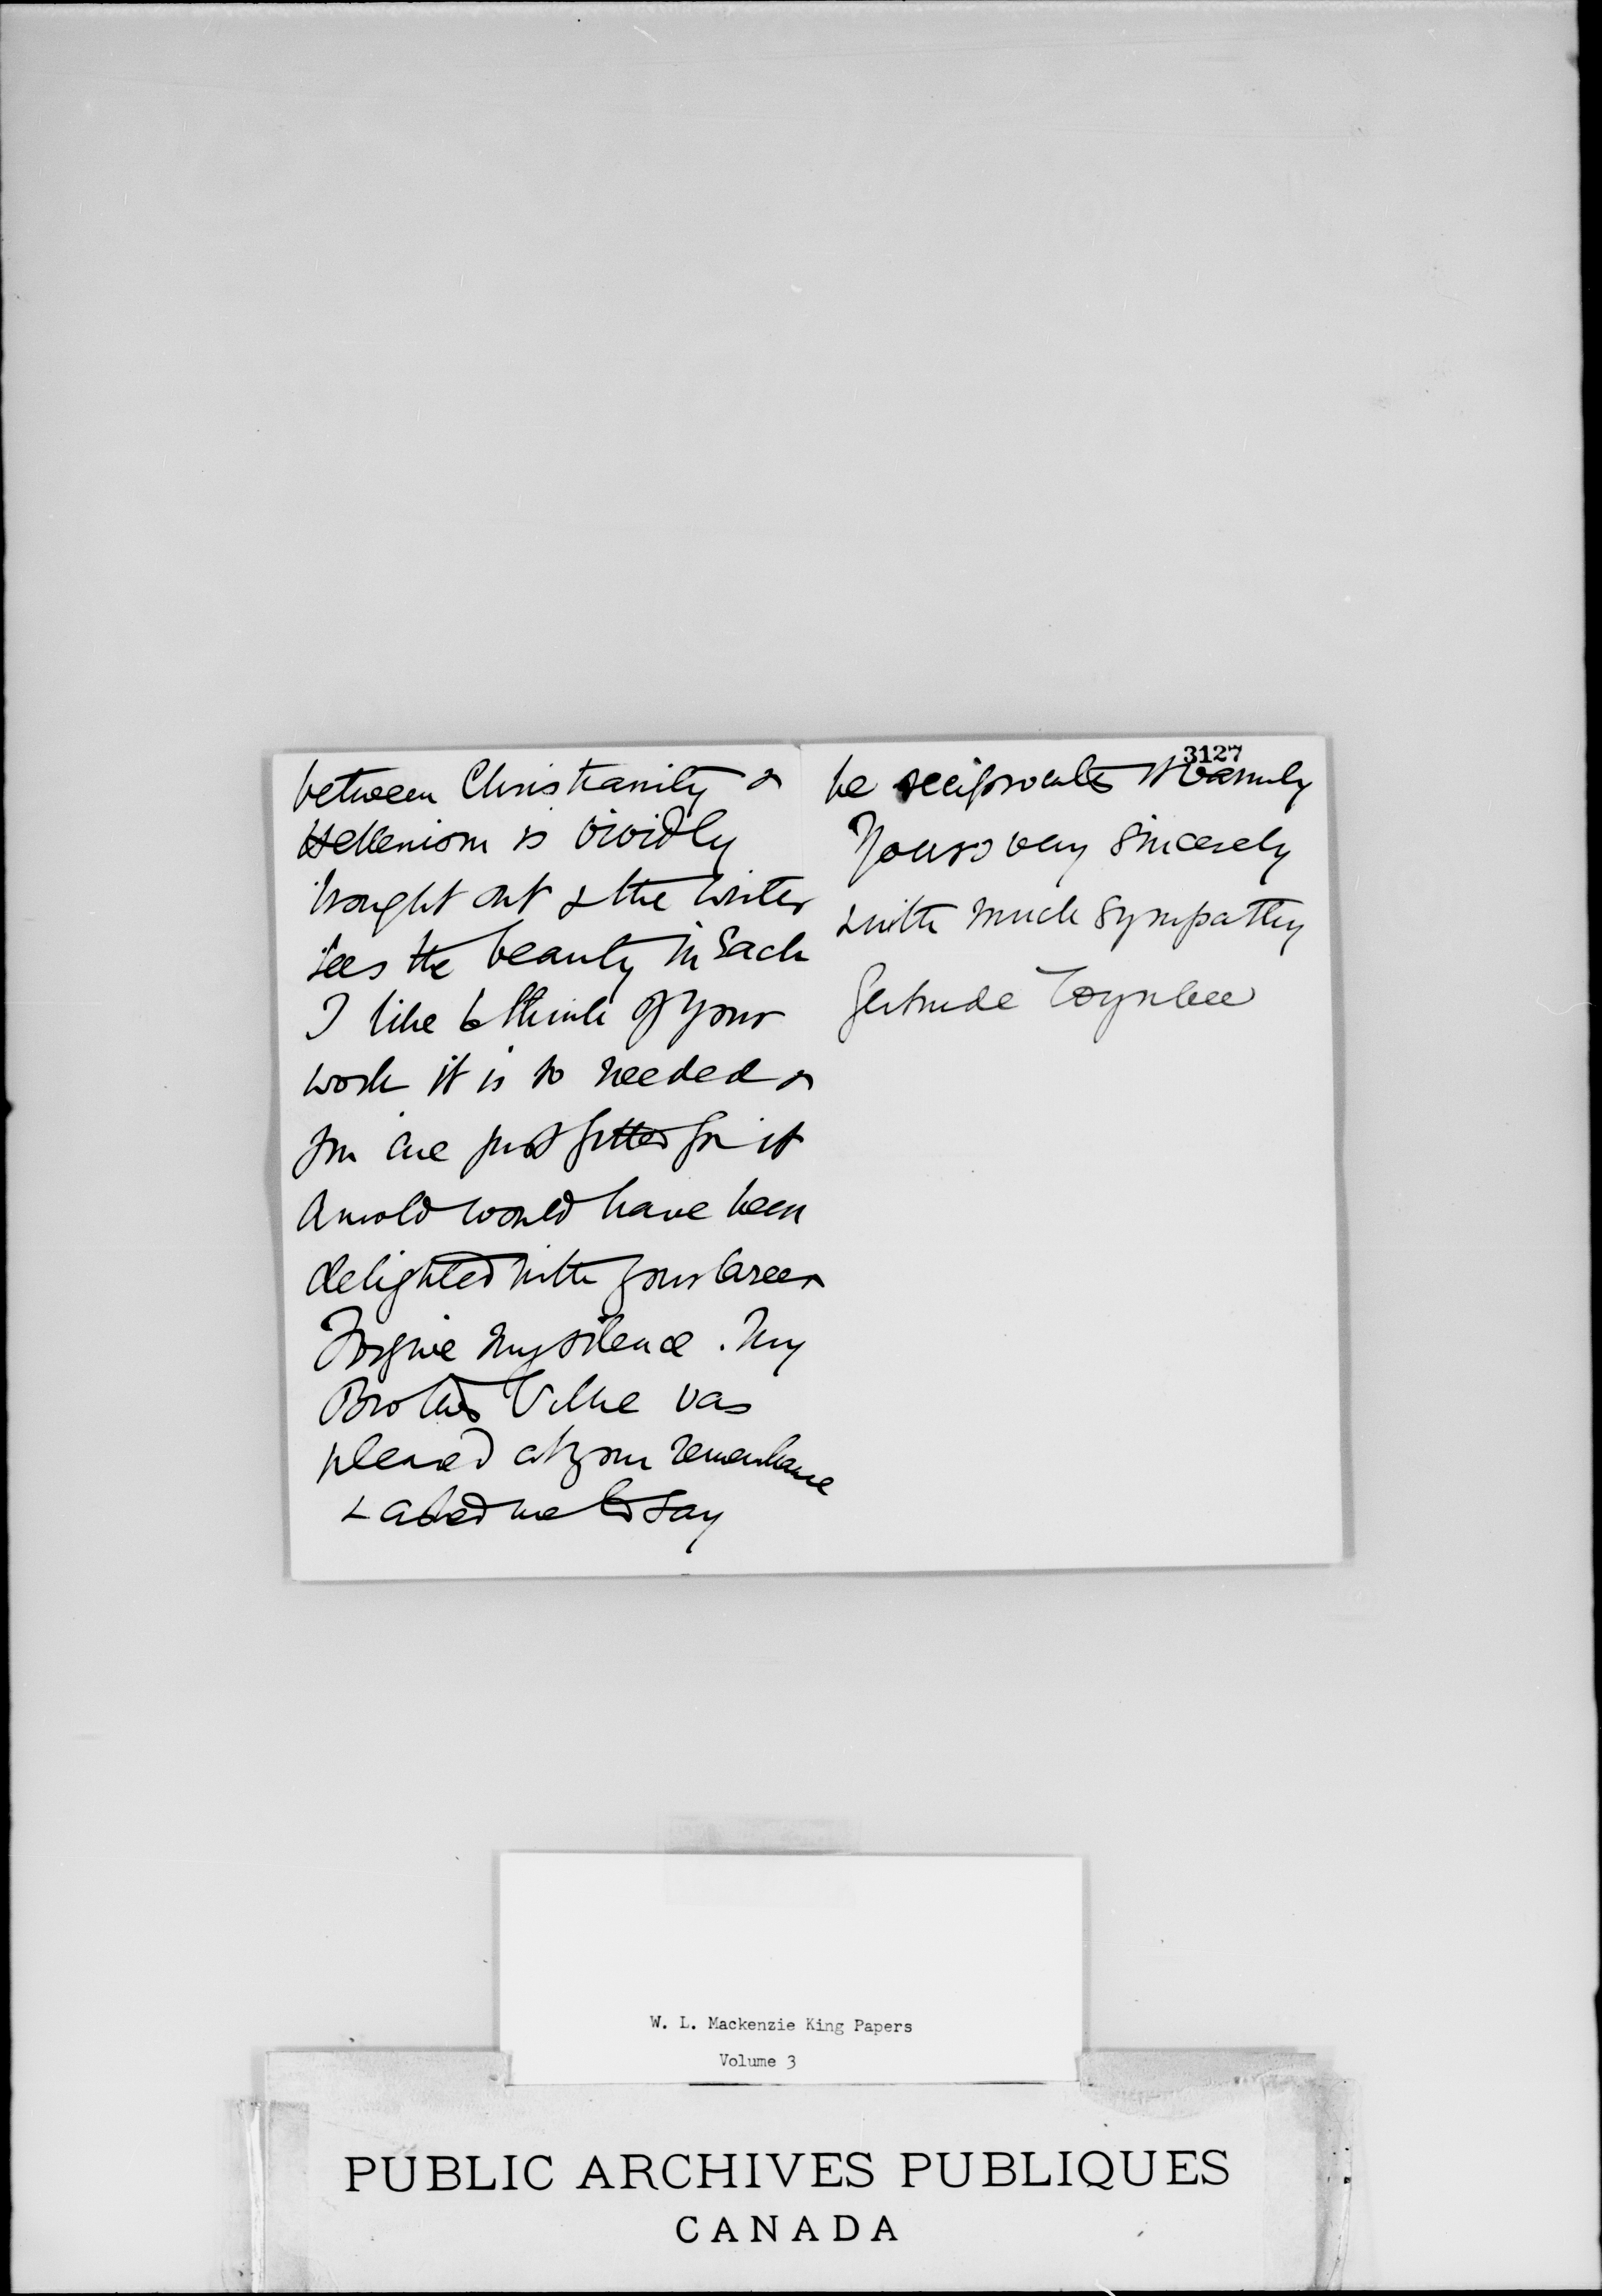 between Christianity &
Hellenism is vividly
brought out & the writer
sees the beauty in each
I like to think of your
work it is so needed &
you are just fitted for it
Arnold would have been
delighted with your career
Forgive my silence. My
Brother was
pleased at your remembrance
& asked me to say
3127
he reciprocates it warmly
Yours very sincerely
& with much sympathy
Gertrude Toynbee
W. L. Mackenzie King Papers
Volume 3
PUBLIC ARCHIVES PUBLIQUES
CANADA